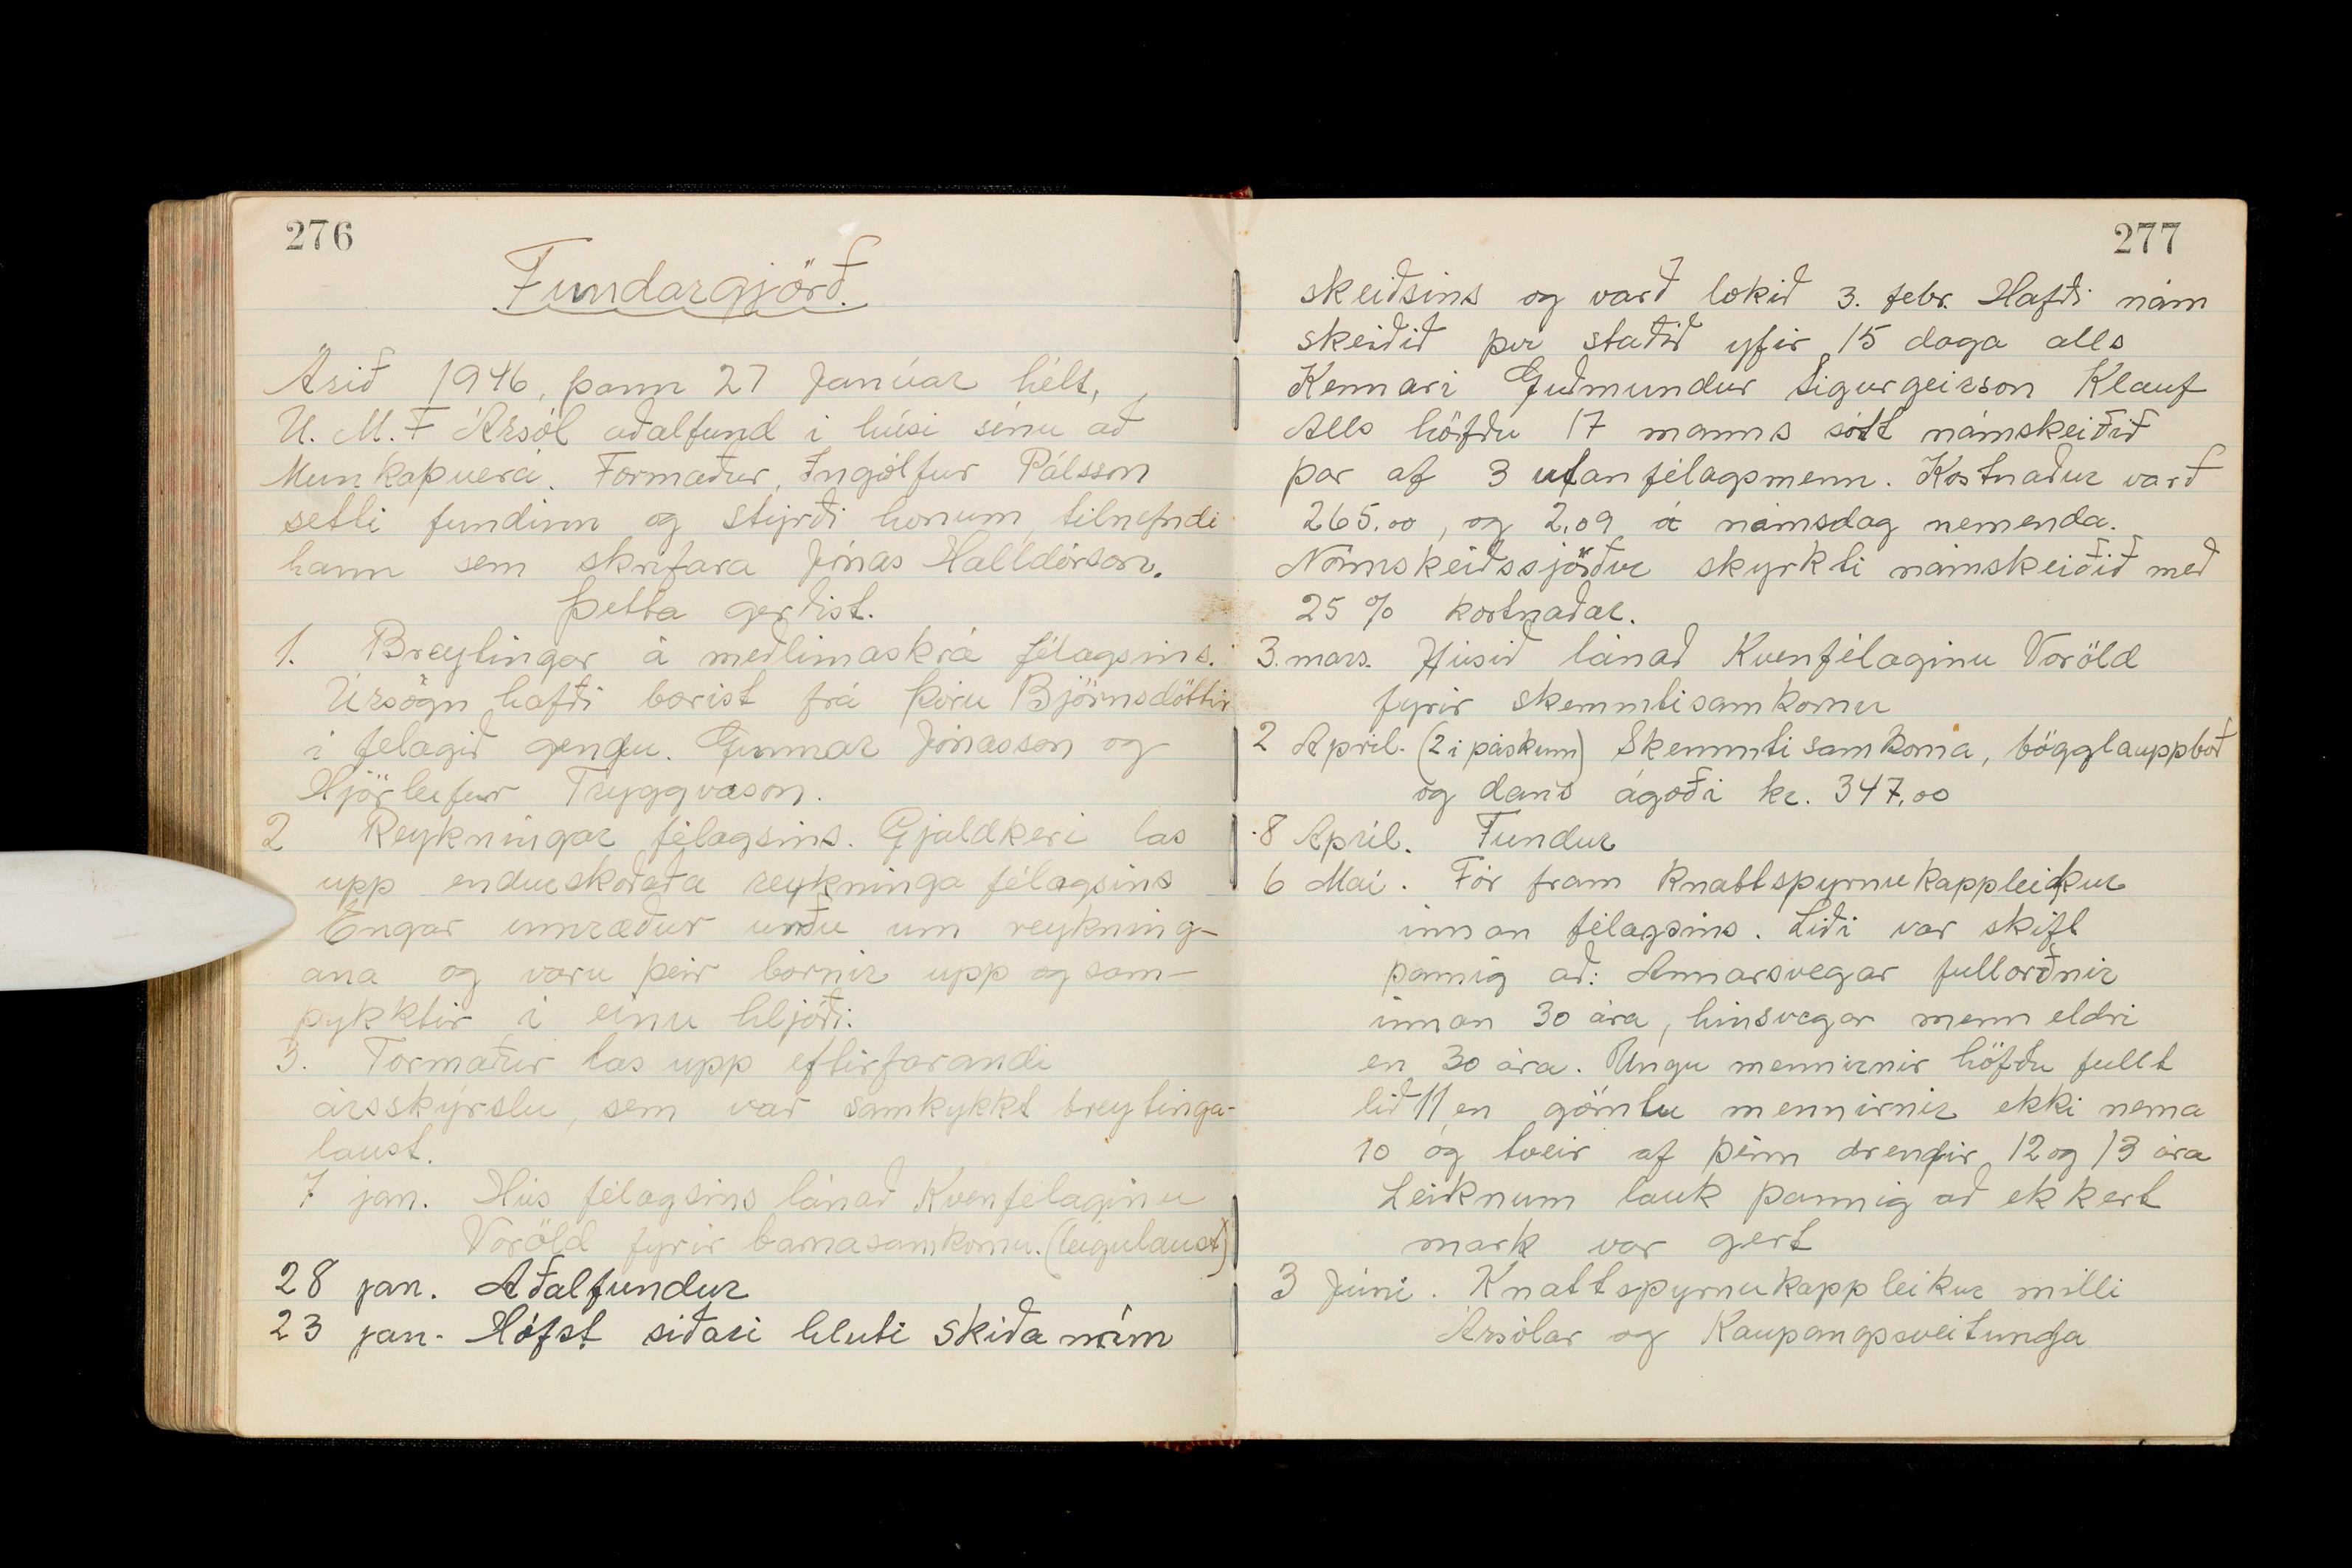 276
Fundargjörð.
Árið 1946, þann 27 Janúar hélt,
U. M. F Ársól aðalfund i húsi sínu að
Munkaþuerá. Formaður, Ingólfur Pálsson
setti fundinn og stýrði honum, tilnefndi
hann sem skrifara Jónas Halldórson.
Þetta gerðist.
1. Breytingar á meðlimaskrá félagsins.
Úrsögn hafði borist frá Þóru Björnsdóttir
i félagið gengu. Gunnar Jónasson og
Hjörleifur Tryggvason.
2 Reykningar félagsins. Gjaldkeri las
upp endurskoðaða reykninga félagsins
Engar umræður urðu um reykning-
ana og voru þeir bornir upp og sam-
þykktir i einu hljóði.
3. Formaður las upp eftirfarandi
ársskýrslu, sem var samkykkt breytinga-
laust.
7 jan. Hús félagsins lánað Kvenfélaginu
Voröld fyrir barnasamkomu. (leigulaust)
28 jan. Aðalfundur
23 jan. Hófst siðari hluti skiða nám
277
skeiðsins og varð lokið 3. febr. Hafði nám
skeiðið þvi staðið yfir 15 daga alls
Kennari Guðmundur Sigurgeirson Klauf
Alls höfðu 17 manns sótt námskeiðið
þar af 3 utanfélagsmenn. Kostnaður varð
265.00, og 2,09 á námsdag nemenda.
Námskeiðssjóður skyrkti námskeiðið með
25 % kostnaðar.
3. mars. Húsið lánað Kvenfélaginu Voröld
fyrir skemmtisamkomu
2 April. (2 i páskum) Skemmtisamkoma, bögglauppboð
og dans ágoði kr. 347,00
8 April. Fundur
6 Mai. Fór fram Knattspyrnukappleikur
innan félagsins. Liði var skift
þannig að: Annarsvegar fullorðnir
innan 30 ára, hinsvegar menn eldri
en 30 ára. Ungu mennirnir höfðu fullt
lið 11 en gömlu mennirnir ekki nema
10 og tveir af þeim drengir 12 og 13 ára
Leiknum lauk þannig að ekkert
mark var gert
3 Júni. Knattspyrnukappleikur milli
Ársólar og Kaupangssveitunga